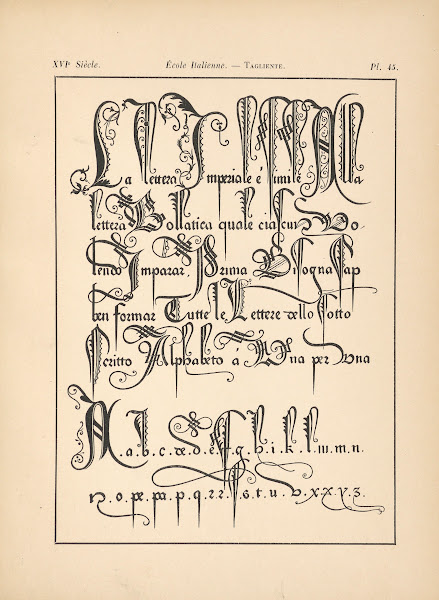 XVIᵉ Siècle. École Italienne. — TAGLIENTE. Pl. 45.
La lettera Imperiale é simile Ala
lettera Bollatica quale ciascun Vo-
lendo Imparar, Prima Bisogna sap
ben formar Tutte le Lettere dello sotto
scritto Alphabeto á Una per Una
.a.b.c.d.e.f.g.h.i.k.l.m.n.
.o.p.q.r.s.t.u.v.x.y.z.